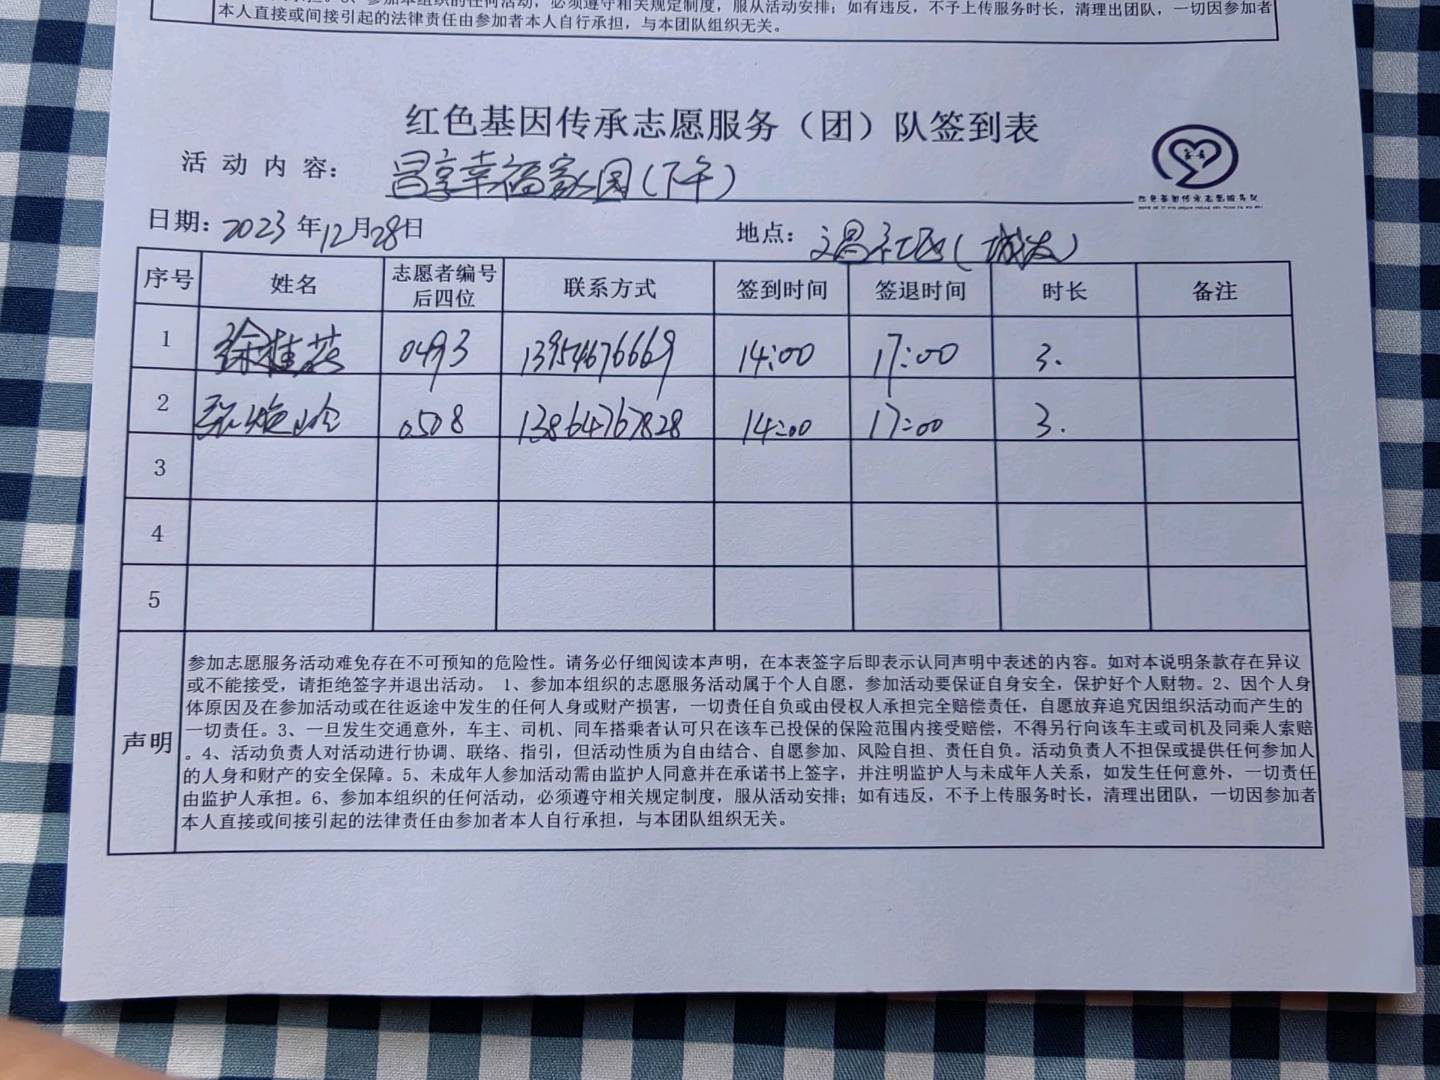 本人直接或间接引起的法律责任由参加者本人自行承担，与本团队组织无关。
红色基因传承志愿服务（团）队签到表
活动内容： 昌享幸福家园（下午）
日期：2023年12月28日 地点：文昌社区（城发）
序号 姓名 志愿者编号后四位 联系方式 签到时间 签退时间 时长 备注
1 徐桂 0493 13954676669 14:00 17:00 3.
2 张 0508 13864767828 14:00 17:00 3.
3
4
5
声明
参加志愿服务活动难免存在不可预知的危险性。请务必仔细阅读本声明，在本表签字后即表示认同声明中表述的内容。如对本说明条款存在异议
或不能接受，请拒绝签字并退出活动。 1、参加本组织的志愿服务活动属于个人自愿，参加活动要保证自身安全，保护好个人财物。2、因个人身
体原因及在参加活动或在往返途中发生的任何人身或财产损害，一切责任自负或由侵权人承担完全赔偿责任，自愿放弃追究因组织活动而产生的
一切责任。3、一旦发生交通意外，车主、司机、同车搭乘者认可只在该车已投保的保险范围内接受赔偿，不得另行向该车主或司机及同乘人索赔
。4、活动负责人对活动进行协调、联络、指引，但活动性质为自由结合、自愿参加、风险自担、责任自负。活动负责人不担保或提供任何参加人
的人身和财产的安全保障。5、未成年人参加活动需由监护人同意并在承诺书上签字，并注明监护人与未成年人关系，如发生任何意外，一切责任
由监护人承担。6、参加本组织的任何活动，必须遵守相关规定制度，服从活动安排；如有违反，不予上传服务时长，清理出团队，一切因参加者
本人直接或间接引起的法律责任由参加者本人自行承担，与本团队组织无关。